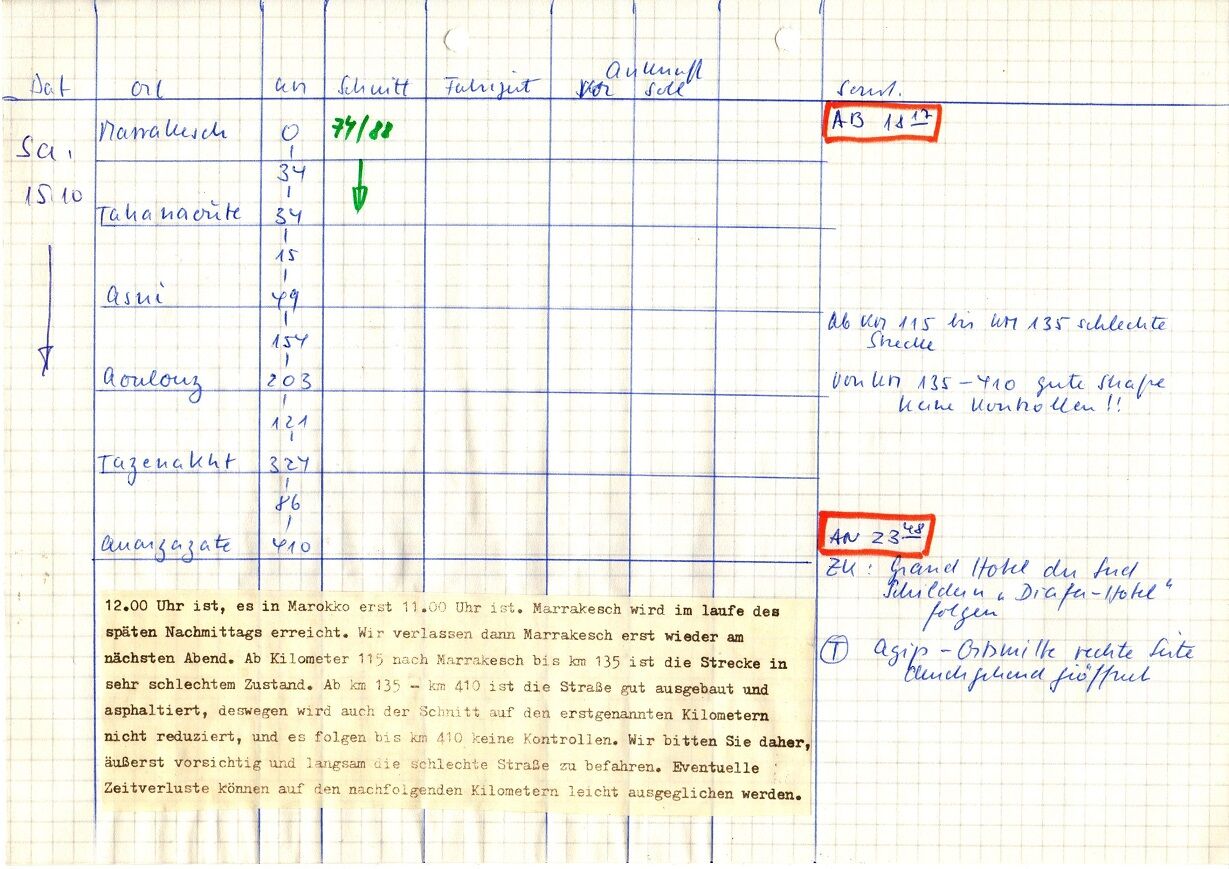 Ankunft
Dat Ort km Schnitt Fahrzeit vor soll Sonst.
Marrakesch 0 74/88 AB 18 17
Sa.
34
15.10
Tahanaoute 34
15
Asni 49
Ab km 115 bis km 135 schlechte
Strecke
154
Aoulouz 203
von km 135 - 410 gute Straße
keine Kontrollen!!
121
Tazenakht 324
86
AN 23 48
Ouarzazate 410
ZK: Grand Hotel du Sud
Schildern „Diafa-Hotel"
folgen
T Agip - Ortsmitte rechte Seite
durchgehend geöffnet
12.00 Uhr ist, es in Marokko erst 11.00 Uhr ist. Marrakesch wird im laufe des
späten Nachmittags erreicht. Wir verlassen dann Marrakesch erst wieder am
nächsten Abend. Ab Kilometer 115 nach Marrakesch bis km 135 ist die Strecke in
sehr schlechtem Zustand. Ab km 135 - km 410 ist die Straße gut ausgebaut und
asphaltiert, deswegen wird auch der Schnitt auf den erstgenannten Kilometern
nicht reduziert, und es folgen bis km 410 keine Kontrollen. Wir bitten Sie daher,
äußerst vorsichtig und langsam die schlechte Straße zu befahren. Eventuelle
Zeitverluste können auf den nachfolgenden Kilometern leicht ausgeglichen werden.